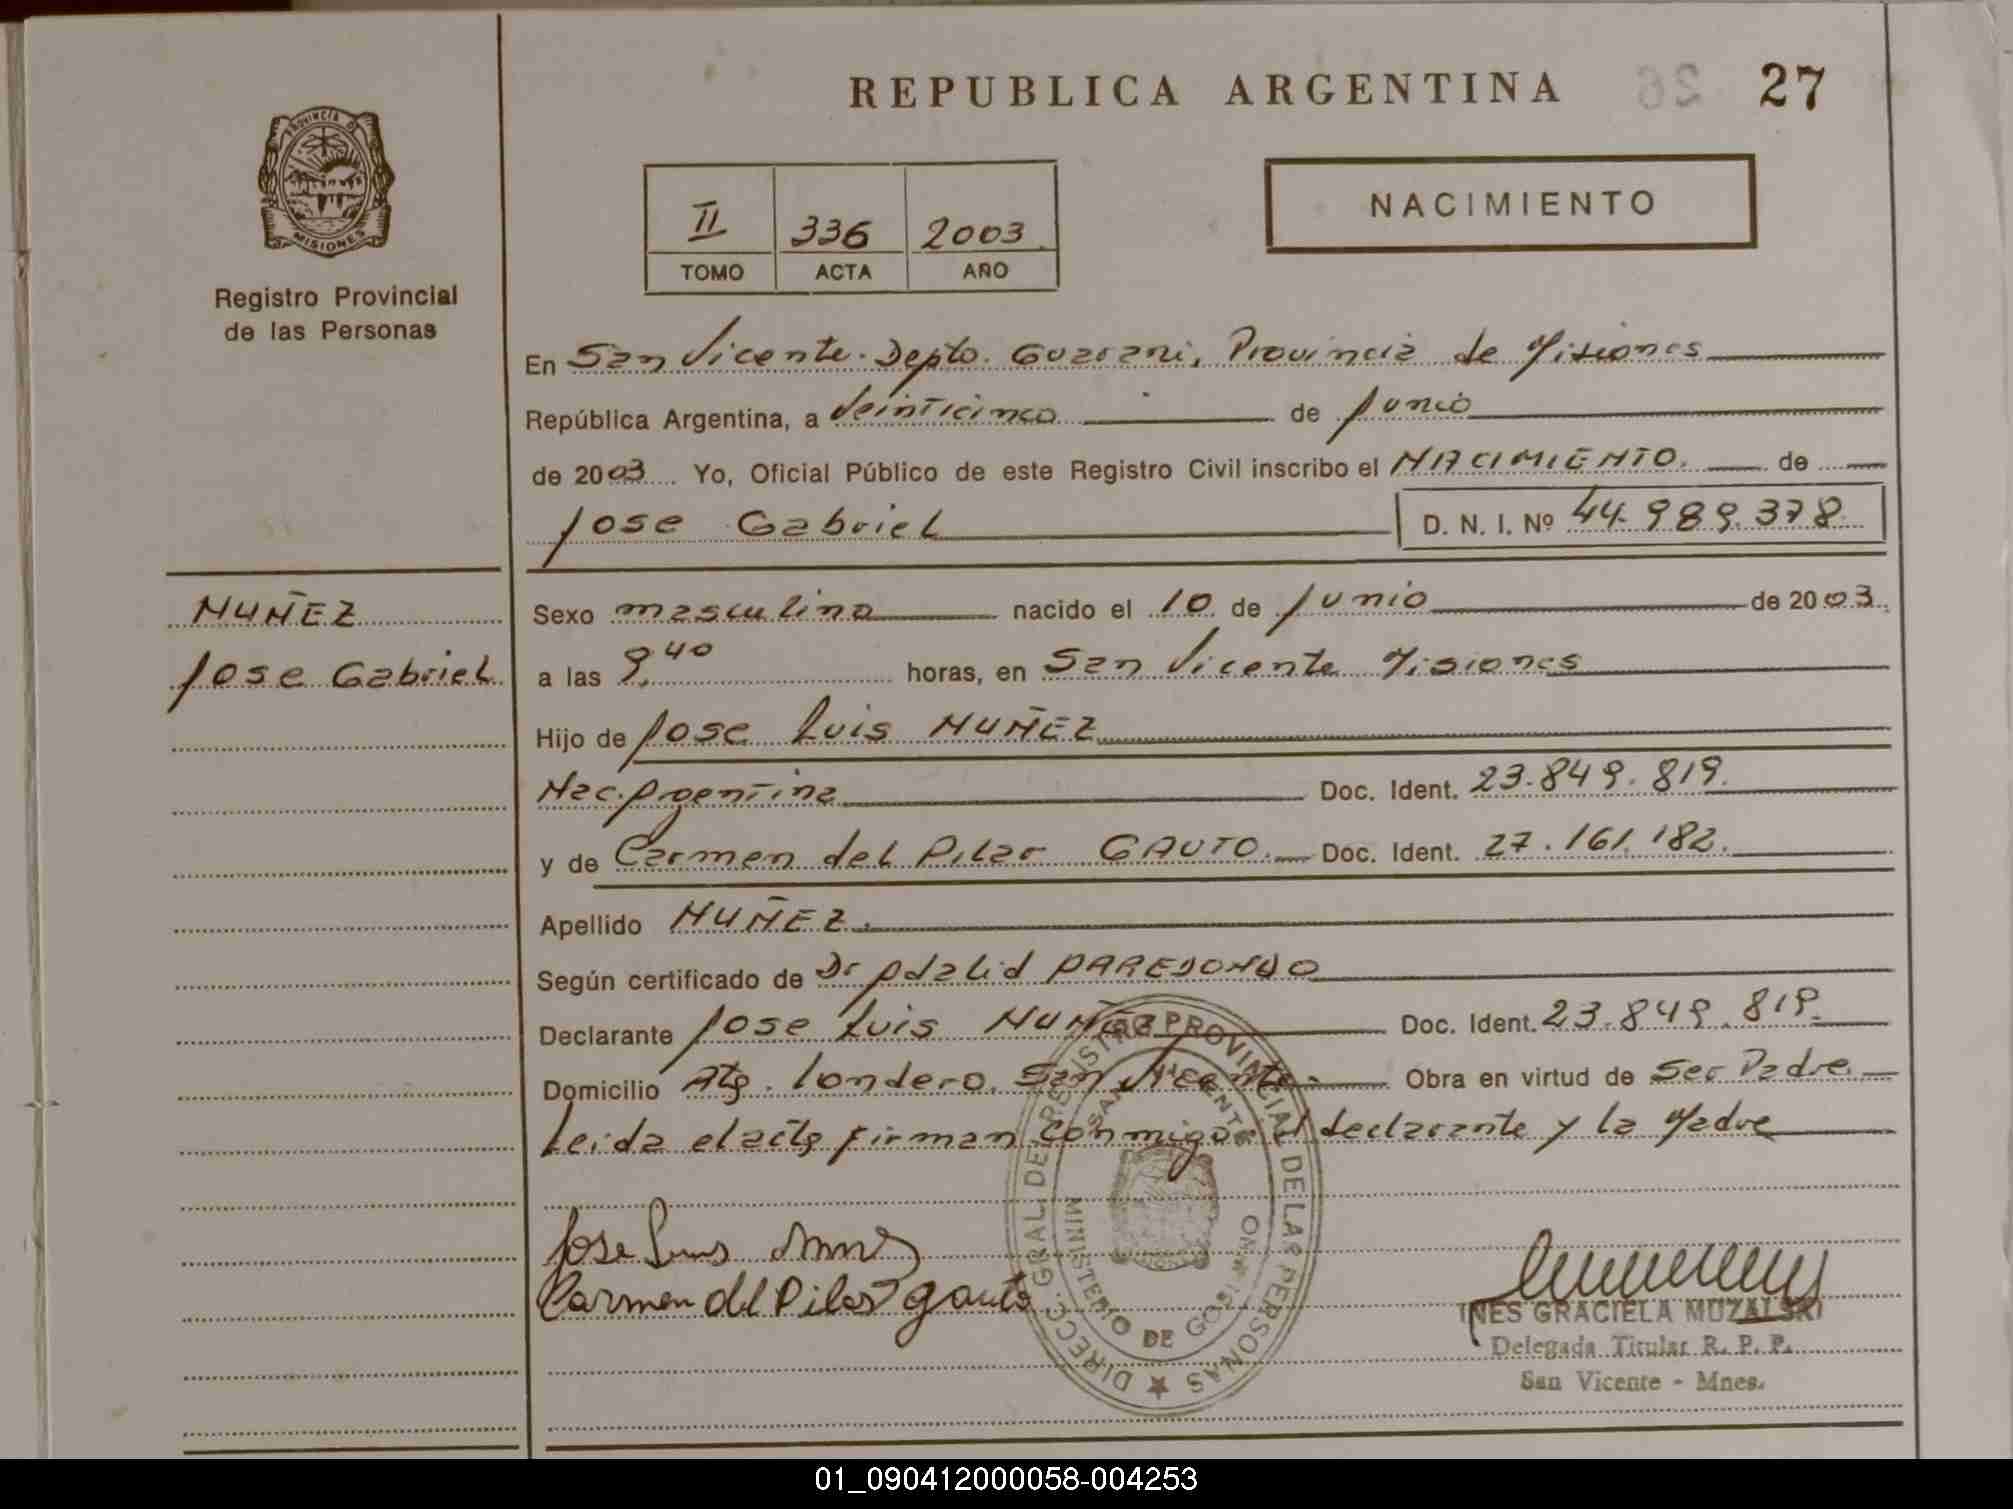 REPUBLICA ARGENTINA 26 27
PROVINCIA DE MISIONES
Registro Provincial
de las Personas
II 336 2003
TOMO ACTA AÑO
NACIMIENTO
En San Vicente. Depto. Guarani, Provincia de Misiones
República Argentina, a Veinticinco de Junio
de 2003 Yo, Oficial Público de este Registro Civil inscribo el NACIMIENTO. de
Jose Gabriel D. N. I. Nº 44.989.378
MUÑEZ
Jose Gabriel
Sexo masculino nacido el 10 de Junio de 2003
a las 9,40 horas, en San Vicente Misiones
Hijo de Jose Luis MUÑEZ
Nac. Argentina Doc. Ident. 23.849.819.
y de Carmen del Pilar GAUTO. Doc. Ident. 27.161.182.
Apellido MUÑEZ.
Según certificado de Dr Adalid
Declarante Jose Luis MUÑEZ Doc. Ident. 23.849.819.
Domicilio Londero. San Vicente. Obra en virtud de Ser Padre
Leida el acta firman conmigo el declarante y la Madre
Jose Luis
Carmen del Pilar gauto
DIRECC. GRAL. DEL REGISTRO PROVINCIAL DE LAS PERSONAS
SAN VICENTE
MINISTERIO DE GOBIERNO
INES GRACIELA MUZALSKI
Delegada Titular R. P. P.
San Vicente - Mnes.
01_090412000058-004253